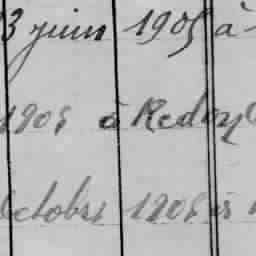 3 juin 1905 à
1905 à Redon
Octobre 1905